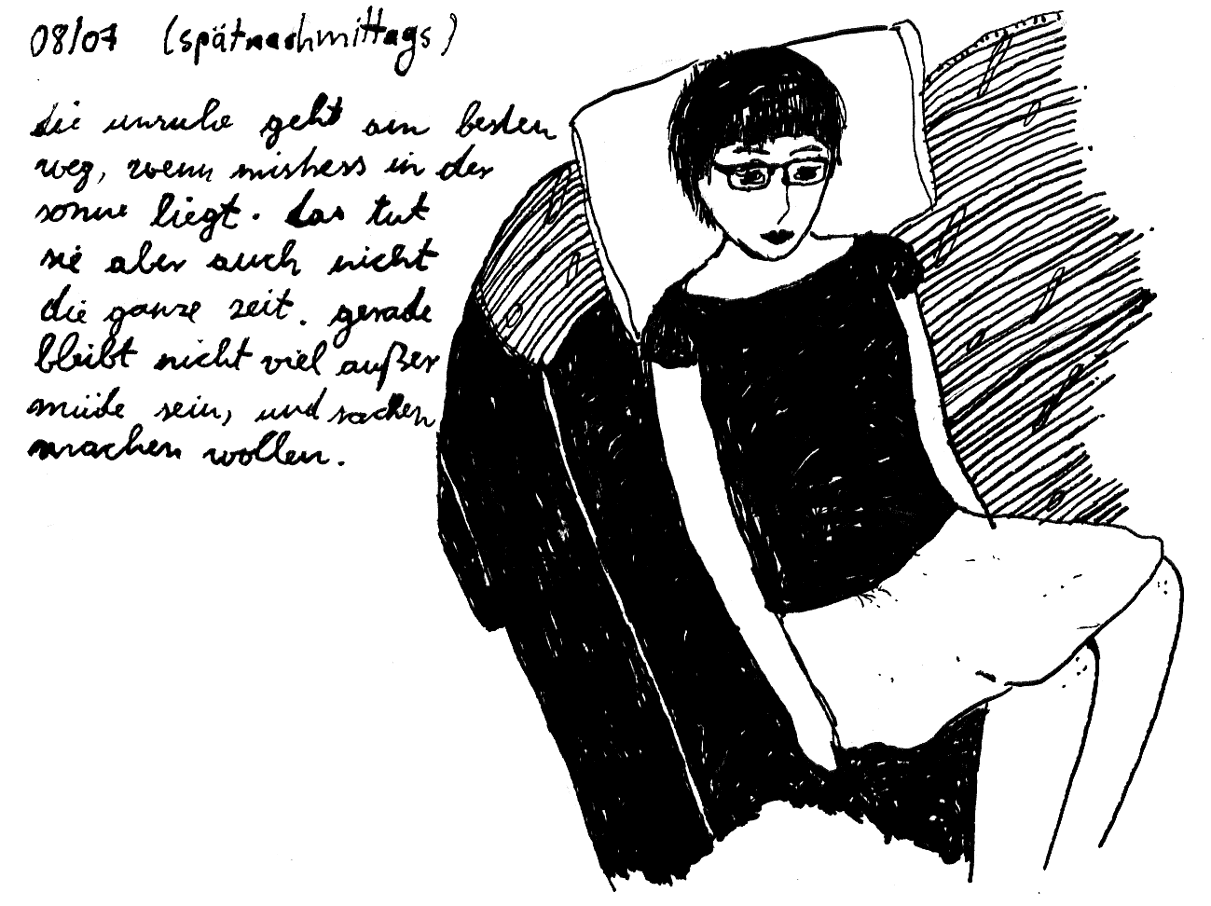 08/07 (spätnachmittags)
die unruhe geht am besten
weg, wenn mishess in der
sonne liegt. das tut
sie aber auch nicht
die ganze zeit. gerade
bleibt nicht viel außer
müde sein, und sachen
machen wollen.